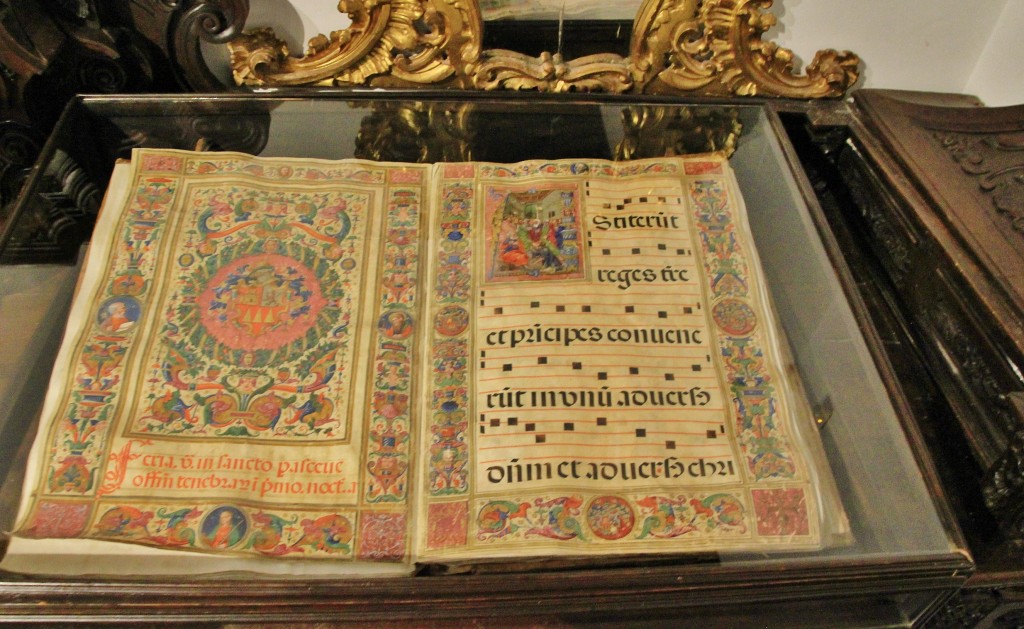 Feria. v̄. in sancto pasceue
offm̄ tenebraꝝ ī p̄mo. noct.
Stiterūt
reges t̄re
et prīcipes conuene
rūt in vnū aduersꝰ
dn̄m et aduersꝰ chri